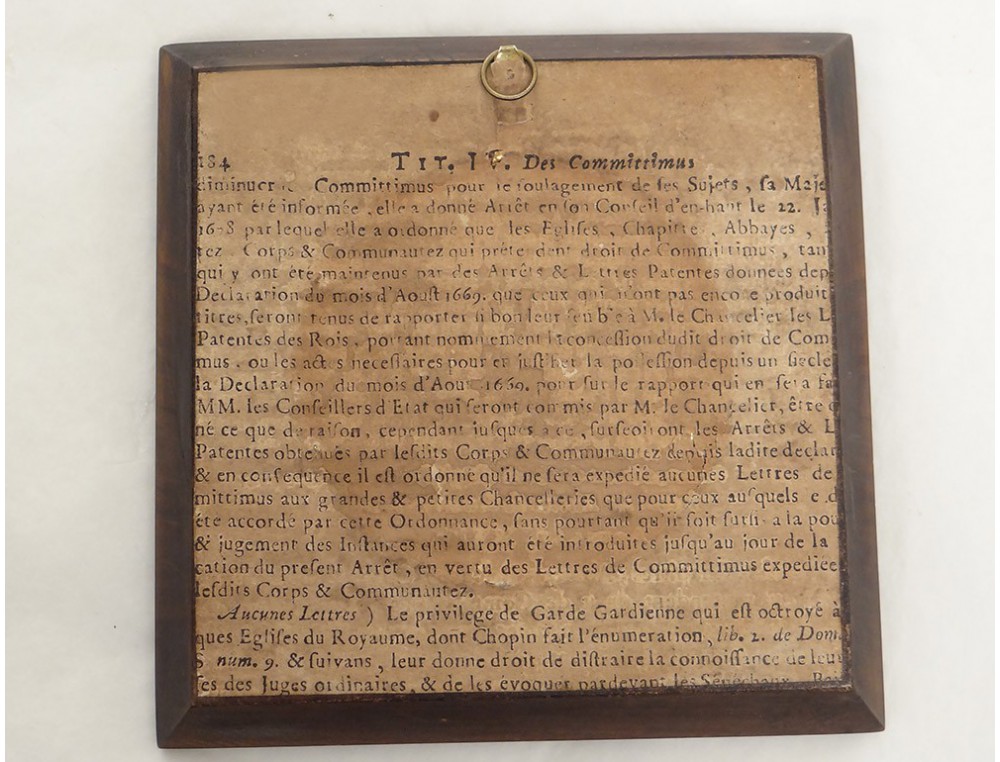 5
184 TIT. IV. Des Committimus
diminuer Committimus pour le soulagement de ses Sujets, sa Maje
ayant été informée, elle a donné Arrêt en son Conseil d'en-haut le 22. J
par lequel elle a ordonné que les Eglises, Chapitres, Abbayes,
tez Corps & Communautez qui prétendent droit de Committimus, tan
qui y ont été maintenus par des Arrêts & Lettres Patentes données dep
Declaration du mois d'Aoust 1669. que ceux qui n'ont pas encore produit
titres, seront tenus de rapporter si bon leur semble à M. le Chancelier les L
Patentes des Rois, portant nommément la concession dudit droit de Com
mus, ou les actes necessaires pour en justifier la possession depuis un siecle
la Declaration du mois d'Aoust 1669. pour sur le rapport qui en sera fa
MM. les Conseillers d'Etat qui seront commis par M. le Chancelier, être o
né ce que de raison, cependant jusques à ce, surseoiront les Arrêts & L
Patentes obtenuës par lesdits Corps & Communautez depuis ladite declar
& en consequence il est ordonné qu'il ne sera expedié aucunes Lettres de
mittimus aux grandes & petites Chancelleries que pour ceux ausquels
été accordé par cette Ordonnance, sans pourtant qu'il soit sursis à la pou
& jugement des Instances qui auront été introduites jusqu'au jour de la
cation du present Arrêt, en vertu des Lettres de Committimus expediée
lesdits Corps & Communautez.
Aucunes Lettres ) Le privilege de Garde Gardienne qui est octroyé à
ques Eglises du Royaume, dont Chopin fait l'énumeration, lib. 2. de Dom.
num. 9. & suivans, leur donne droit de distraire la connoissance de leur
ses des Juges ordinaires, & de les évoquer pardevant les Sénéchaux